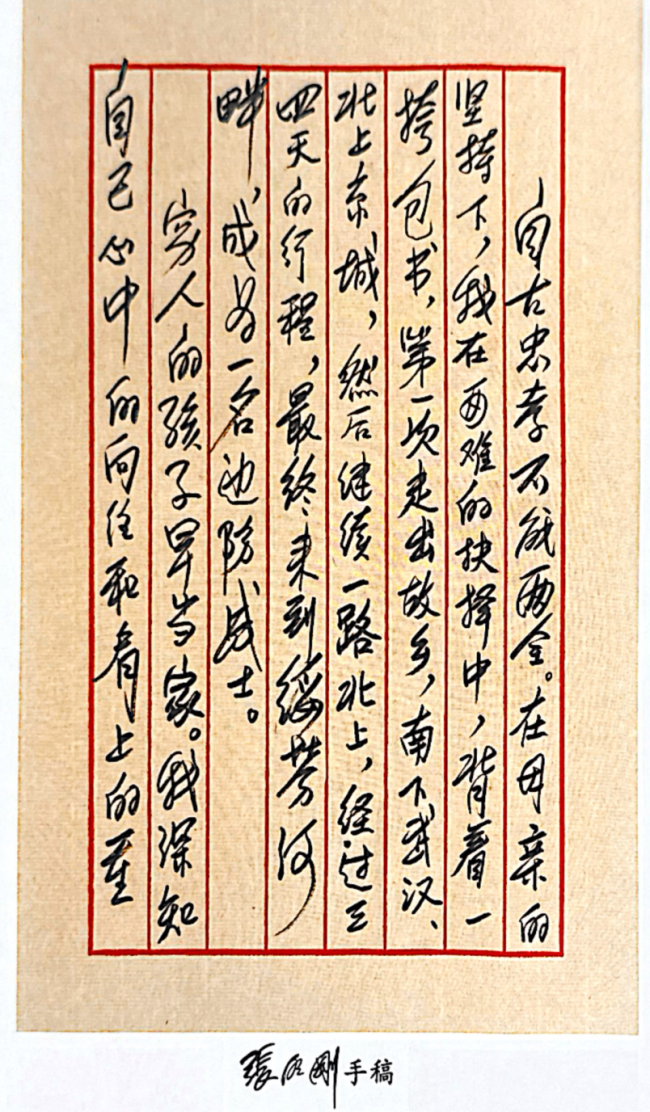 自古忠孝不能两全。在母亲的
坚持下，我在两难的抉择中，背着一
挎包书，第一次走出故乡，南下武汉、
北上京城，然后继续一路北上，经过三
四天的行程，最终来到绥芬河
畔，成为一名边防战士。
穷人的孩子早当家。我深知
自己心中的向往和肩上的重
張明刚手稿